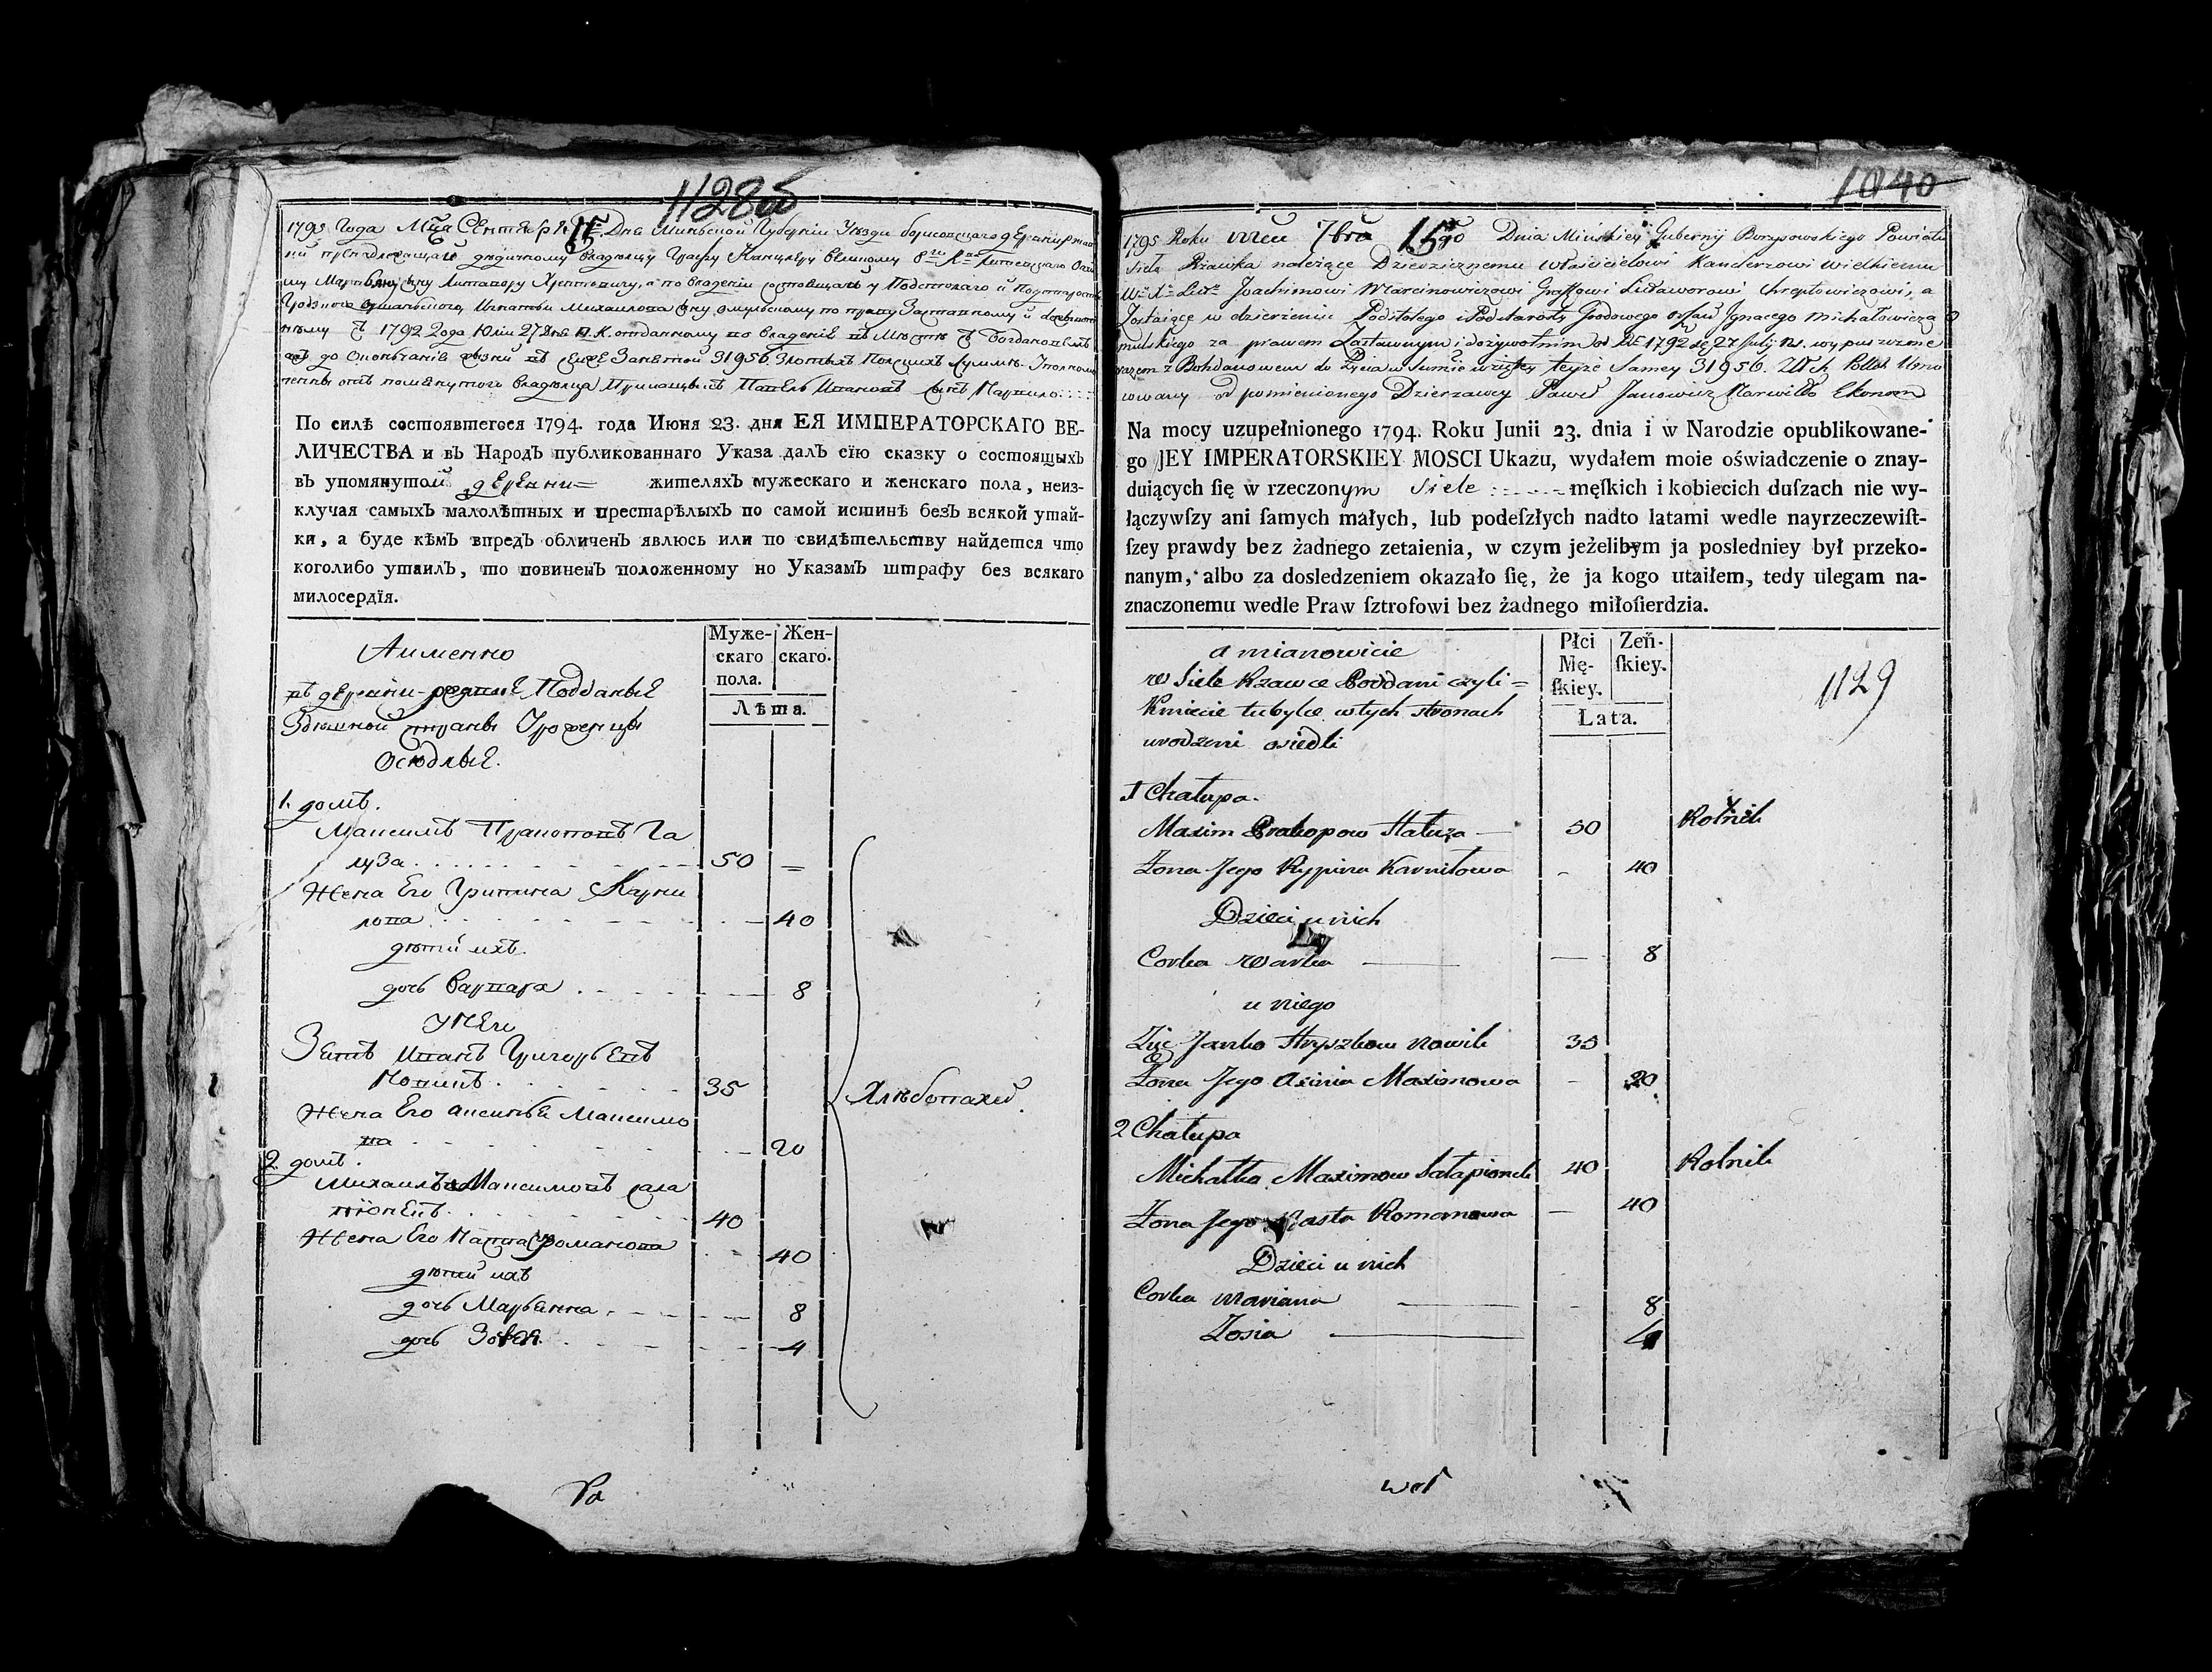 1128об
1795 Года Мца Сентября 15 Дня Минской Губернїи Уезда борисовскаго деревни ржав
ки принадлежащаго дедичному владелцу Графу Канцлеру великому В К Литовскаго
Литавору Хрептовичу, а по владенїи состоящаго у Подстолаго и Подстаросты
Гродскаго оршанскаго, Игнатия Михайлова сну омулскому по праву Заставному и
1792 Года Юлии 27 Дня отданному во владенїе въ Месте съ Богдановымъ
до окончанїя жизни въ сумме Занятой 31956 Злотыхъ Полскихъ
отъ помянутого владелца Павелъ Ивановъ сынъ Марвило
По силѣ состоявшегося 1794. года Июня 23. дня ЕЯ ИМПЕРАТОРСКАГО ВЕ-
ЛИЧЕСТВА и въ Народъ публикованнаго Указа далъ сїю сказку о состоящыхъ
въ упомянутой деревни= жителяхъ мужескаго и женскаго пола, неиз-
ключая самыхъ малолѣтныхъ и престарѣлыхъ по самой истинѣ безъ всякой утай-
ки, а буде кѣмъ впредъ обличенъ явлюсь или по свидѣтельству найдется что
коголибо утаилъ, то повиненъ положенному по Указамъ штрафу без всякаго
милосердїя.
Аименно
Муже-
скаго
пола.
Жен-
скаго.
Лѣта.
въ деревни ржавке Подданые
Здешной страны Уроженцы
Оседлые.
1. домъ.
Максимъ Пракоповъ Га
луза 50 =
Жена Его Грипина Карни
лова 40
детей ихъ
дочь Варвара 8
У Него
Зять Иванъ Григорьевъ
Новикъ 35
Жена Его Аксинья Максимо
ва 20
2. домъ.
Михаилъ Максимовъ сала
пїонекъ 40
Жена Его Настасья Романова 40
детей ихъ
дочь Марьянна 8
дочь Зофея 4
Хлебопахец
Ра
1040
1795 Roku Mca 7bra 15go Dnia Minskiey Gubernij Borysowskiego Powiatu
Sieła Rzawka należące Dziedzicznemu Właścicielowi Kanclerzowi Wielkiemu
W X Litt Joachimowi Marcinowiczowi Graffowi Litaworowi Chreptowiczowi, a
Zostaiące w dzierżeniu Podstolego i Podstarosty Grodowego Orszań Jgnacego Michałowicza O
mulskiego za prawem Zastawnym i dożywotnim od Rku 1792 27 Julij wypuszczone
razem z Bohdanowem do Życia w Summie wziętey teyże samey 31956. Złtch Polsk Umo
cowany od pomienionego Dzierzawcy Paweł Janowicz Marwiłło Ekonom
Na mocy uzupełnionego 1794. Roku Junii 23. dnia i w Narodzie opublikowane-
go JEY IMPERATORSKIEY MOSCI Ukazu, wydałem moie oświadczenie o znay-
duiących ſię w rzeczonym Siele męſkich i kobiecich duſzach nie wy-
łączywſzy ani ſamych małych, lub podeſzłych nadto latami wedle nayrzeczewiſt-
ſzey prawdy bez żadnego zetaienia, w czym jeżelibym ja posledniey był przeko-
nanym, albo za dosledzeniem okazało ſię, że ja kogo utaiłem, tedy ulegam na-
znaczonemu wedle Praw ſztrofowi bez żadnego miłoſierdzia.
a mianowicie
Płci
Mę-
ſkiey.
Zeń-
ſkiey.
Lata.
1129
w Siele Rzawce Poddani czyli=
Kmiecie tubylce w tych stronach
urodzeni osiedli
1 Chałupa.
Maxim Prakopow Hałuza 50 Rolnik
Żona Jego Rypina Karniłowa 40
Dzieci u nich
Corka Warka 8
u niego
Zięć Janko Hryszkow Nowik 35
Żona Jego Axinia Maximowa 20
2 Chałupa
Michałko Maximow Sałapionek 40 Rolnik
Żona Jego Nasta Romanowa 40
Dzieci u nich
Corka Mariana 8
Zosia 4